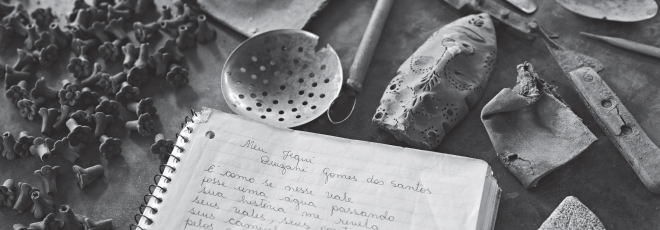 Meu Jequi
Deuzani Gomes dos Santos
É como se nesse vale
fosse uma água passando
sua história me revela
seus vales, seus
pelos